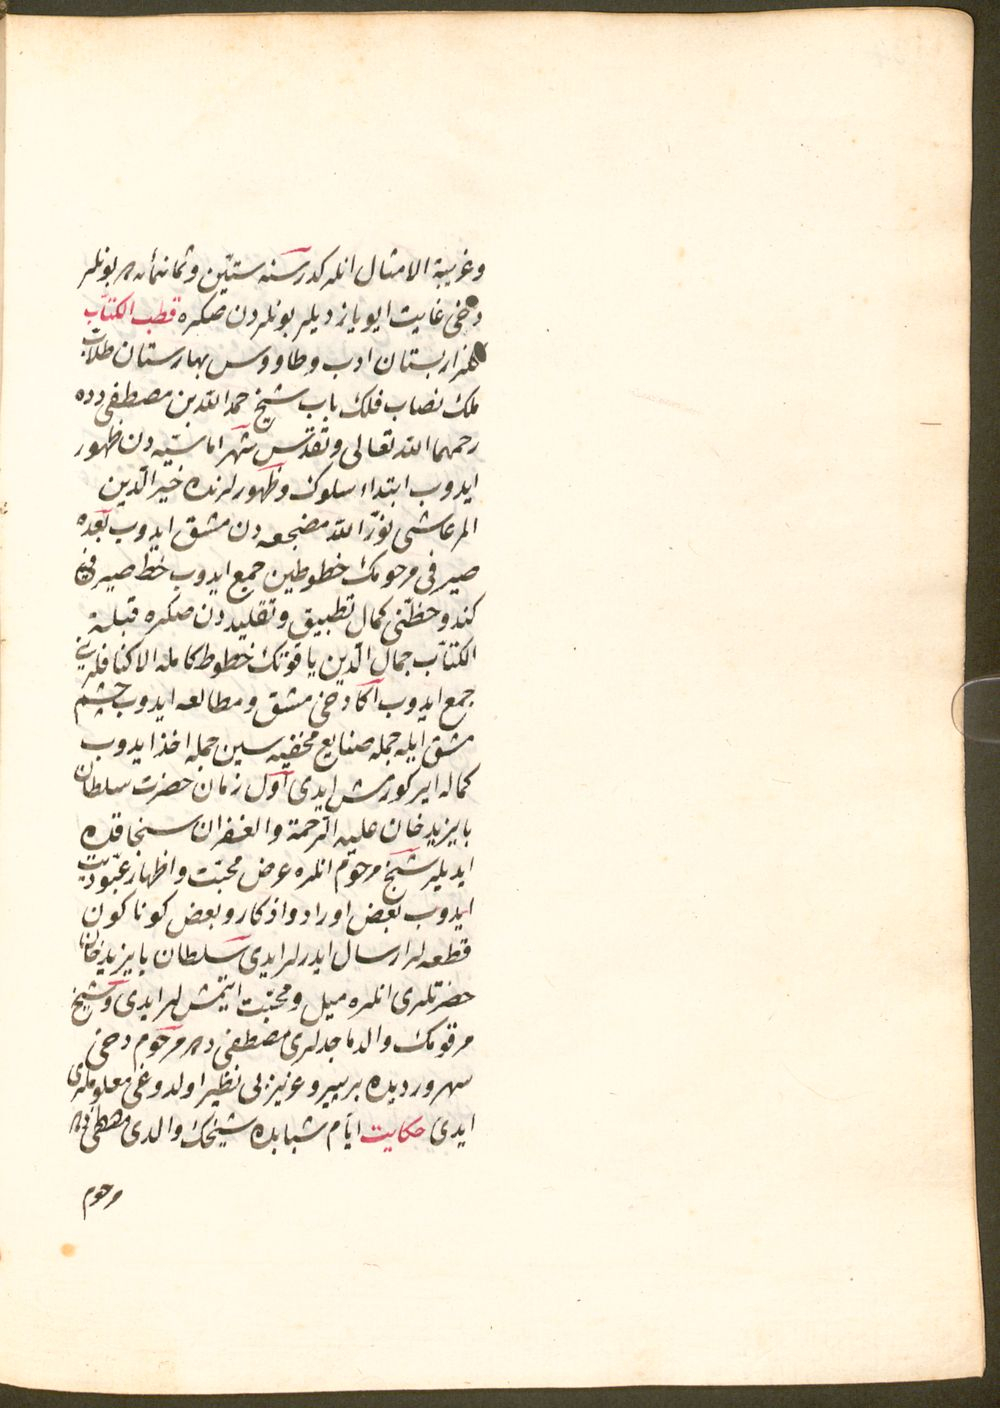 وغريبة الامثال انلركدر سنه ستّين وثمانمأه ده بونلر
دخى غايت ايو يازديلر بونلردن صكره قطب الكتّاب
هزار بستان ادب وطاووس بهارستان طلاب
ملك نصاب فلك باب شيخ حمد الله بن مصطفى دده
رحمهما الله تعالى وتقدّس شهر اماسيّه دن ظهور
ايدوب ابتداء سلوك وظهورلرنده خير الدّين
المرعاشى نوّر الله مضجعه دن مشق ايدوب بعده
صيرفى مرحومك خطوطين جمع ايدوب خط صيرفى
كندو خطّنى كمال تطبيق وتقليددن صكره قبلة
الكتّاب جمال الدّين ياقوتك خطوط كامله الاكنافلرينى
جمع ايدوب آكا دخى مشق ومطالعه ايدوب چشم
مشق ايله جمله صنايع مخفيه سين جمله اخذ ايدوب
كماله ايركورمش ايدى اول زمان حضرت سلطان
بايزيد خان عليه الرّحمة والغفران سنجاقده
ايديلر شيخ مرحوم انلره عرض محبّت واظهار عبوديّت
ايدوب بعض اوراد واذكار وبعض كوناكون
قطعه لر ارسال ايدرلر ايدى سلطان بايزيد خان
حضرتلرى انلره ميل ومحبّت ايتمش لر ايدى وشيخ
مرقومك والد ماجدلرى مصطفى دده مرحوم دخى
سهرورديده بر پير وعزيز بى نظير اولدوغى معلوملرى
ايدى حكايت ايّام شبابده شيخك والدى مصطفى دده
مرحوم